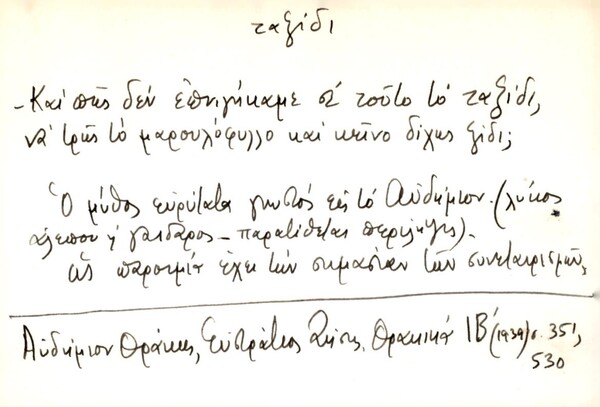 ταξίδι
- Καὶ πῶς δὲν ἐπνιγήκαμε σὲ τοῦτο τὸ ταξίδι,
νὰ τρῆς τὸ μαρουλόφυλλο καὶ κεῖνο δίχως ξίδι;
Ὁ μῦθος εὐρύτατα γνωστὸς εἰς τὸ Αὐδήμιον. (λύκος
ἀλεποὺ ἢ γαΐδαρος - παρατίθεται περίληψις).
Ὡς παροιμία ἔχει τὴν σημασίαν τῶν συνεταιρισμῶν.
Αὐδήμιον Θράκης, Εὐστράτιος Ζήσης, Θρακικὰ ΙΒ΄ (1939) σ. 351,
530